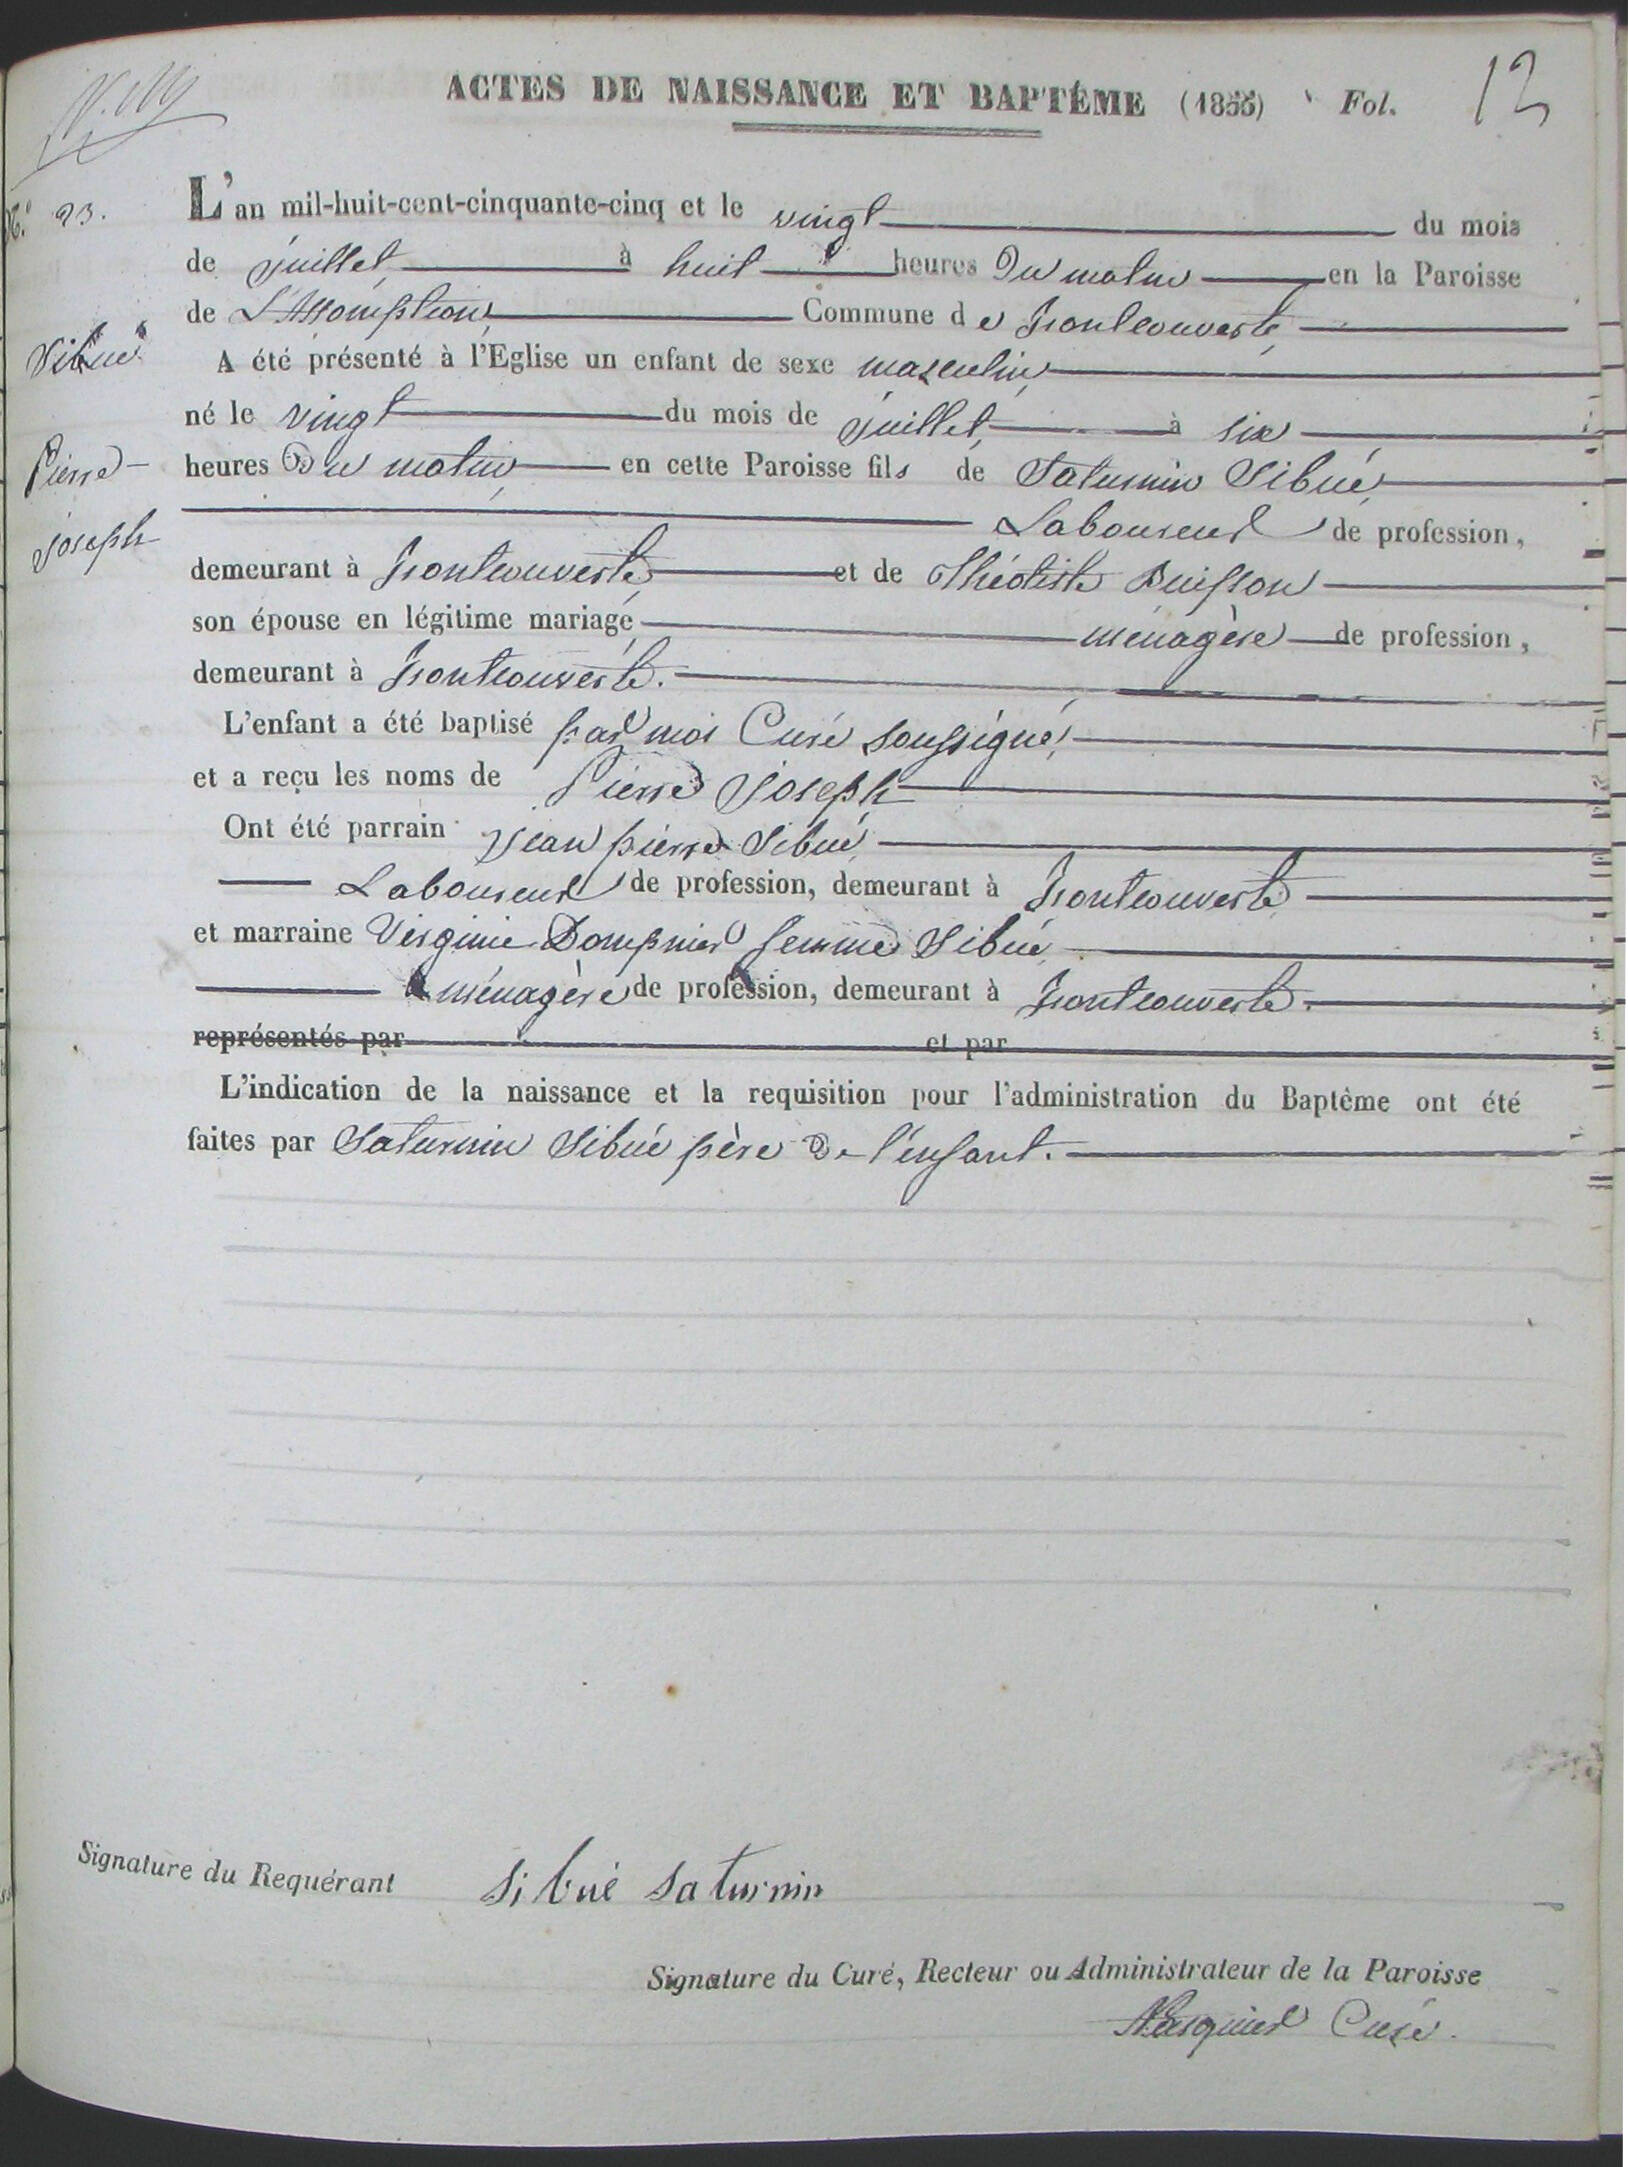 ACTES DE NAISSANCE ET BAPTÊME (1855) Fol. 12
N.° 23.
L'an mil-huit-cent-cinquante-cinq et le vingt du mois
de juillet à huit heures Du matin en la Paroisse
de L'Assomption Commune de Montcouverte
Sibué
A été présenté à l'Eglise un enfant de sexe masculin
né le vingt du mois de juillet à six
Pierre
heures Du matin en cette Paroisse fils de Saturnin Sibué
joseph
Laboureur de profession,
demeurant à Fontcouverte et de Théotiste Buisson
son épouse en légitime mariage ménagère de profession,
demeurant à Fontcouverte.
L'enfant a été baptisé par moi Curé soussigné,
et a reçu les noms de Pierre joseph
Ont été parrain jean pierre Sibué
Laboureur de profession, demeurant à Fontcouverte
et marraine Virginie Dompnier femme Sibué
ménagère de profession, demeurant à Fontcouverte.
représentés par et par
L'indication de la naissance et la requisition pour l'administration du Baptême ont été
faites par Saturnin Sibué père De l'enfant.
Signature du Requérant Sibué Saturnin
Signature du Curé, Recteur ou Administrateur de la Paroisse
Curé.